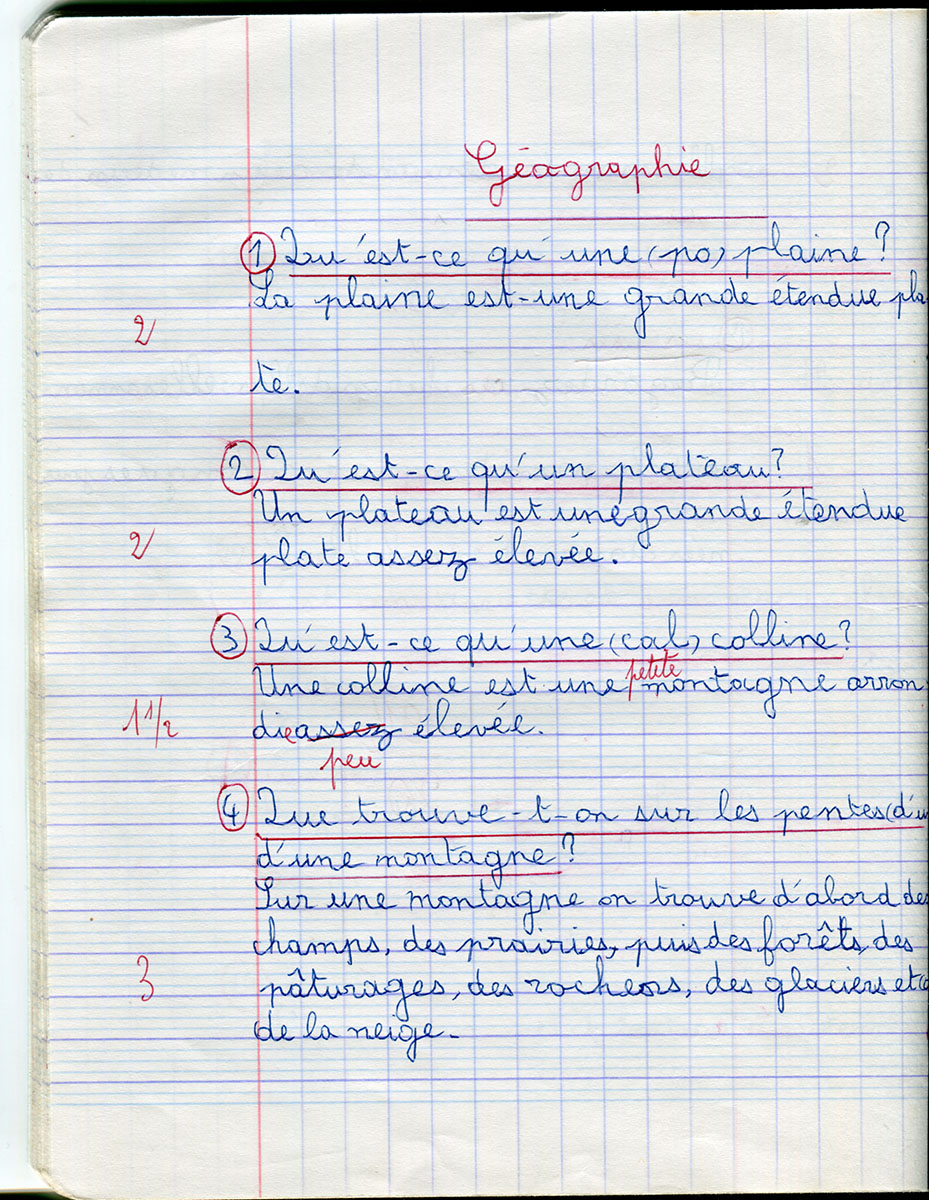 Géographie
① Qu'est-ce qu'une (po) plaine?
La plaine est-une grande étendue pla
2
te.
② Qu'est-ce qu'un plateau?
Un plateau est une grande étendue
2
plate assez élevée.
③ Qu'est-ce qu'une (cal) colline?
petite
Une colline est une montagne arron
1 1/2
die assez élevée.
peu
④ Que trouve-t-on sur les pentes (d'u
d'une montagne?
Sur une montagne on trouve d'abord des
champs, des prairies, puis des forêts, des
3
pâturages, des rochers, des glaciers et
de la neige.